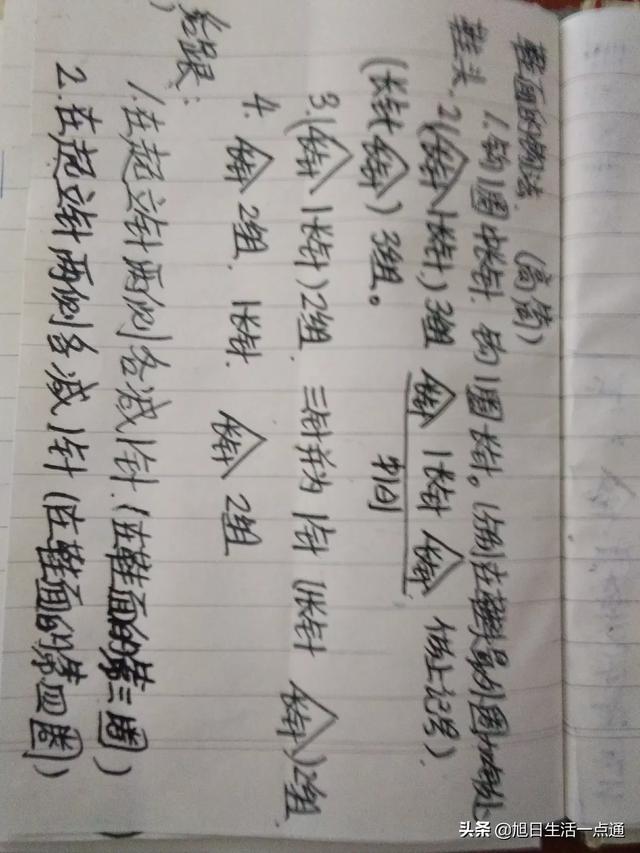 鞋面的钩法. (高筒)
鞋头. 1.钩1圈中长针. 钩1圈长针。(
2(长针 1长针)3组 长针 1长针 长针 做上记号).
中间
(长针 长针) 3组。
3.(长针 1长针)2组. 三针并为1针 (1长针 长针)2组
4. 长针 2组. 1长针. 长针 2组
跟:
1.在起立针两侧各减1针.(在鞋面的第三圈)
2.在起立针两侧各减1针(在鞋面的第四圈)
头条 @旭日生活一点通